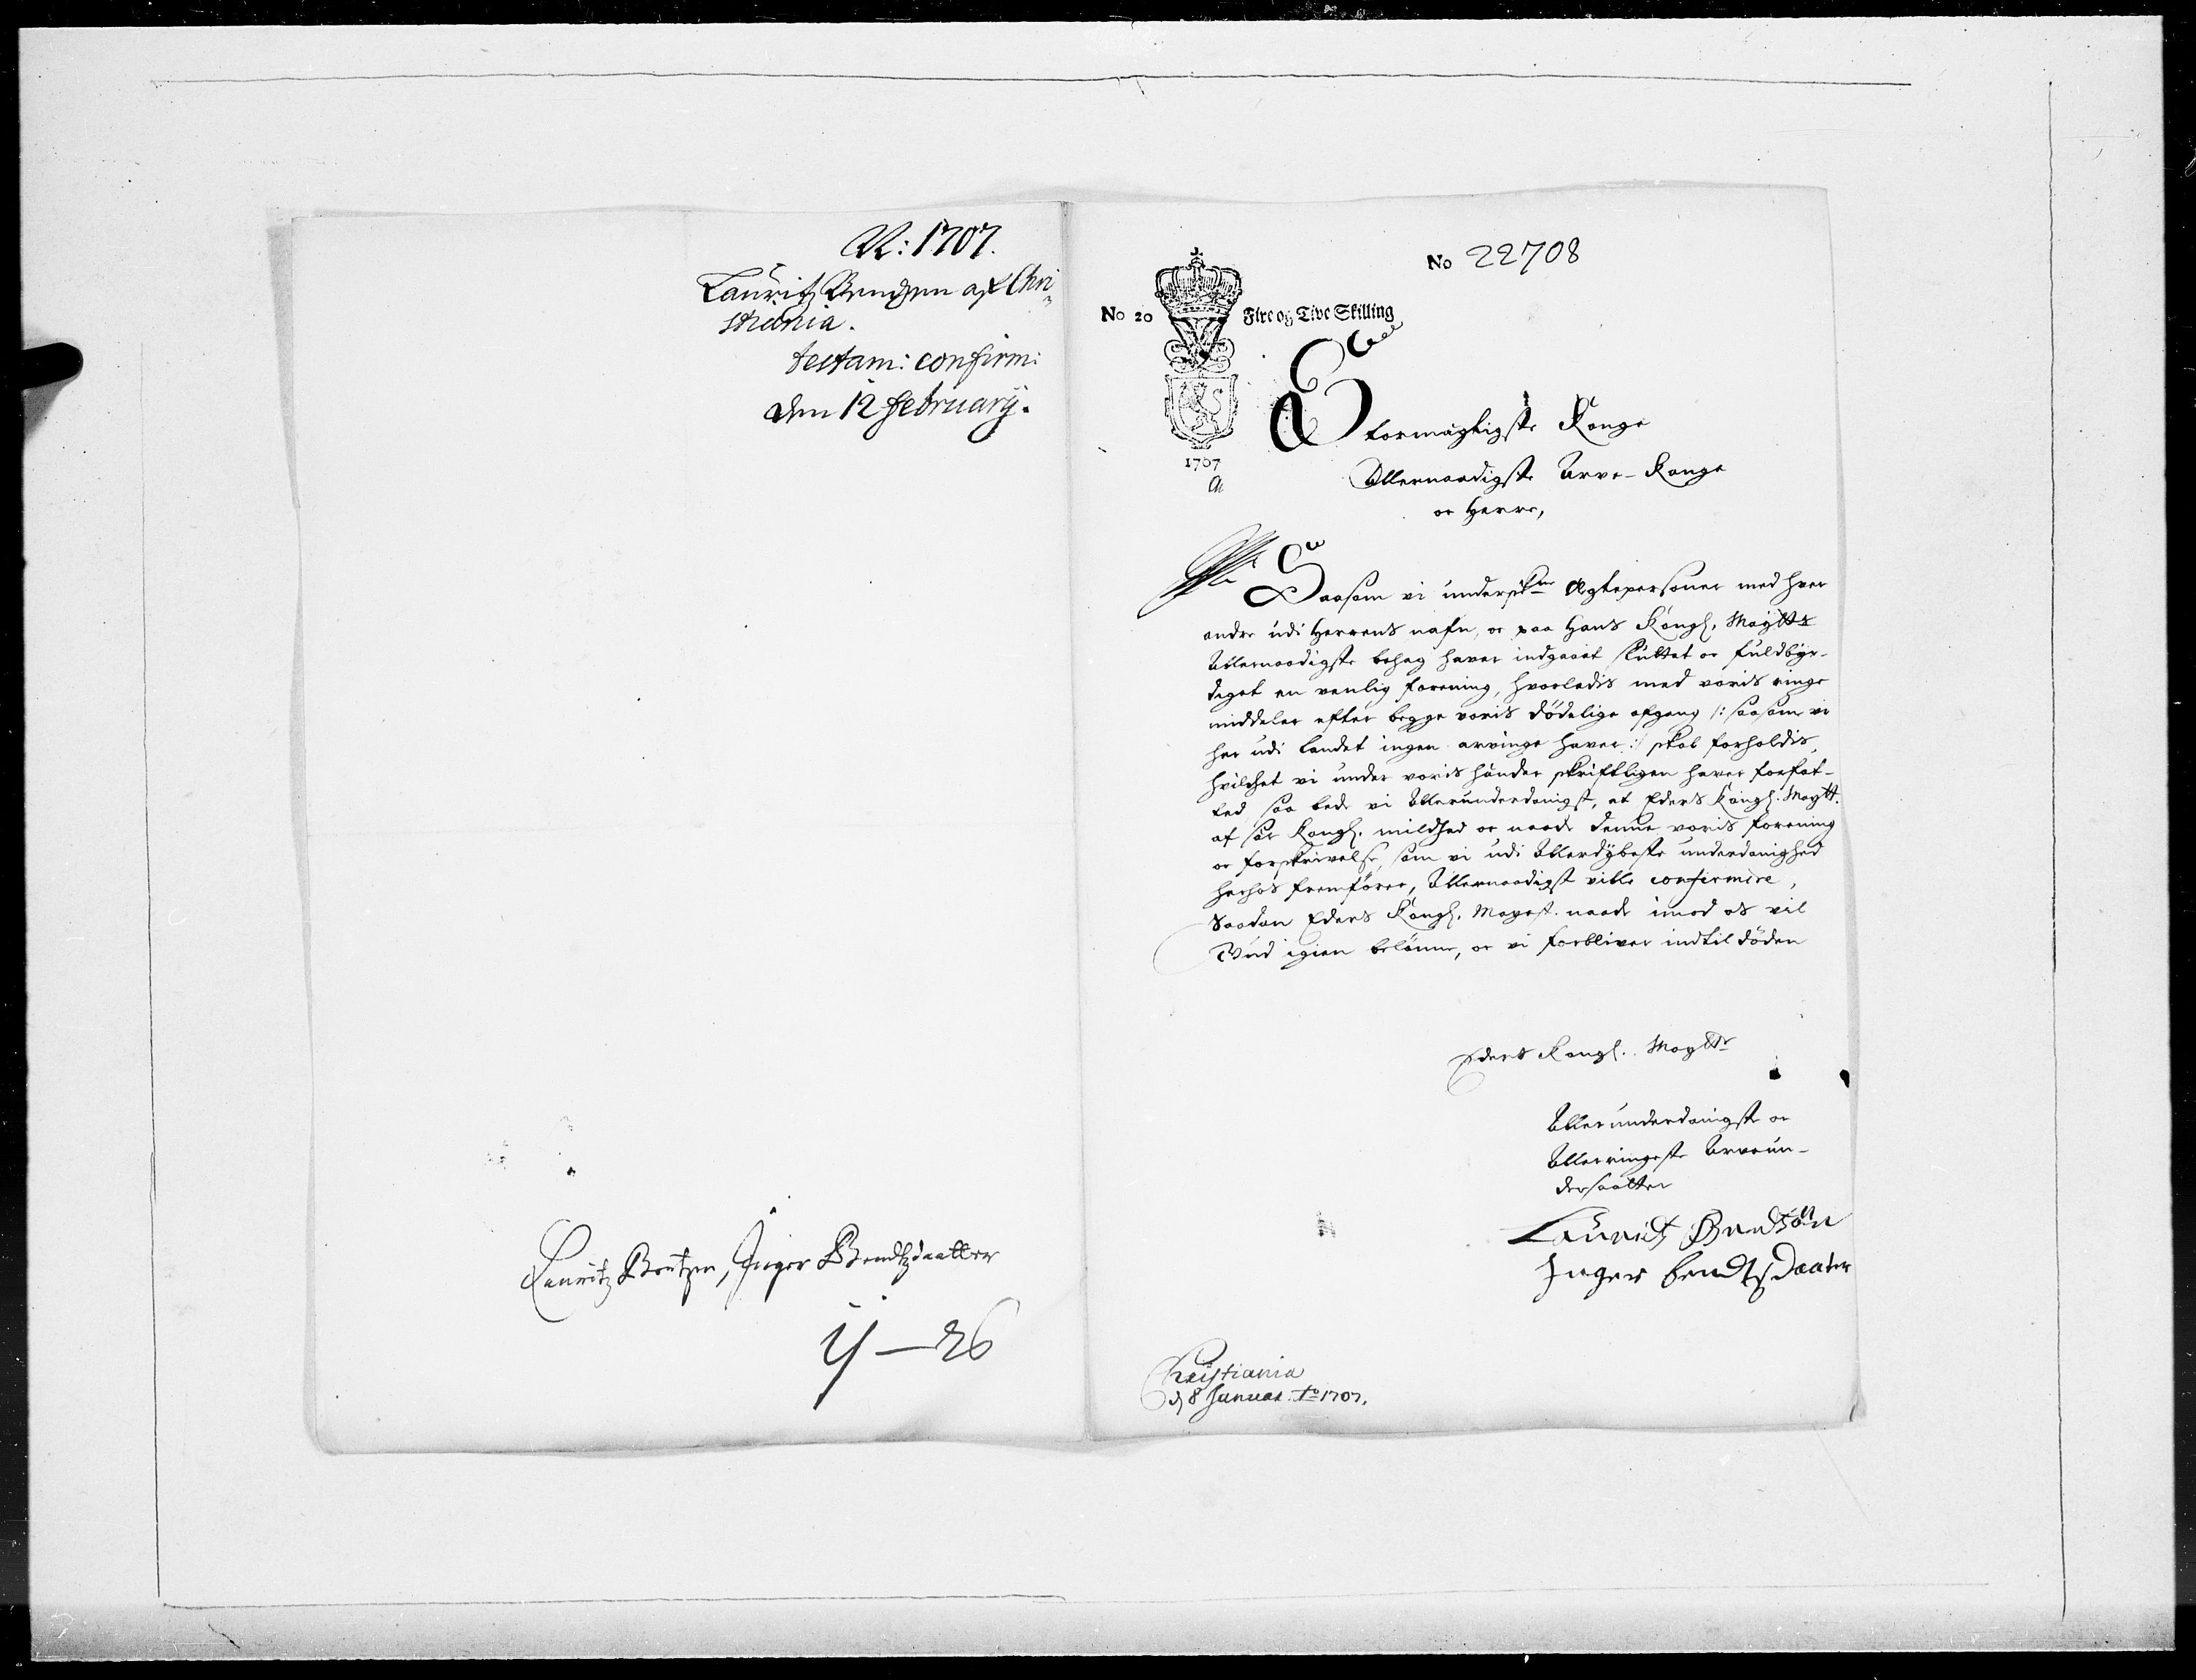 N: 1707.
Lauritz Bendtzen af Chri
stiania.
testam: confirm:
den 12 February.
Lauritz Bentzen, Inger Bendtzdaatter
4 — 26
No 22708
No 20
Fire og Tive Skilling
1707
Stormägtigste Konge
Allernaadigste Arve-Konge
oc Herre,
Saasom vi underskne Ægtepersoner med hver
andre udi Herrens nafn, oc paa Hans Kongl. Maytts
Allernaadigste behag haver indgaaet sluttet oc fuldbyr-
diget en venlig forening, hvorledis med voris ringe
middeler efter begge voris dödelige afgang /: saasom vi
her udi landet ingen arvinge haver :/ skal forholdis,
hvilchet vi under voris hånder skriftligen haver forfat-
ted saa bede vi Allerunderdanigst, at Eders Kongl. Maytt.
af sær Kongl. mildhed oc naade denne voris forening
oc forskrivelse, som vi udi Allerdybeste underdanighed
herhos fremförer, Allernaadigst ville confirmere,
Saadan Eders Kongl. Mayest. naade imod os vil
Gud igien belönne, oc vi forbliver indtil döden
Eders Kongl. Maytts
Allerunderdanigste oc
Allerringeste Arveun-
dersaatter
Lauridtz Bendtsön
Inger bendtzDaater
Christiania
d 8 Januar: Ao 1707.